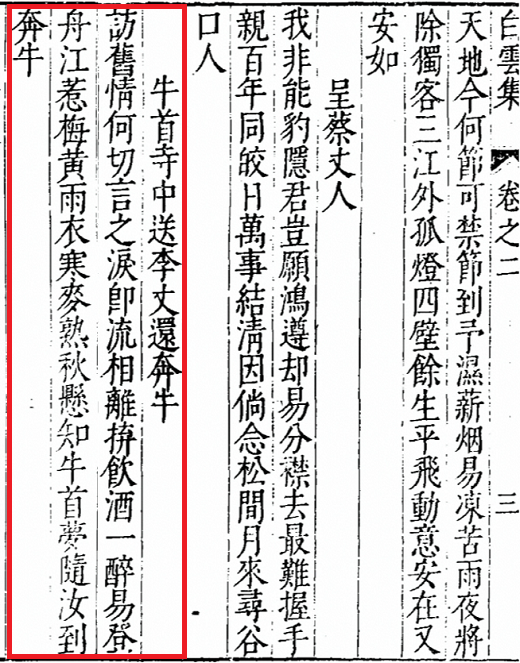 白雲集 卷之二 三
天地今何節可禁節到予濕薪烟易凍苦雨夜將
除獨客三江外孤燈四壁餘生平飛動意安在又
安如
呈蔡丈人
我非能豹隱君豈願鴻遵却易分襟去最難握手
親百年同皎日萬事結清因倘念松間月來尋谷
口人
牛首寺中送李丈還奔牛
訪舊情何切言之淚即流相離拚飲酒一醉易登
舟江惹梅黃雨衣寒麥熟秋懸知牛首夢隨汝到
奔牛